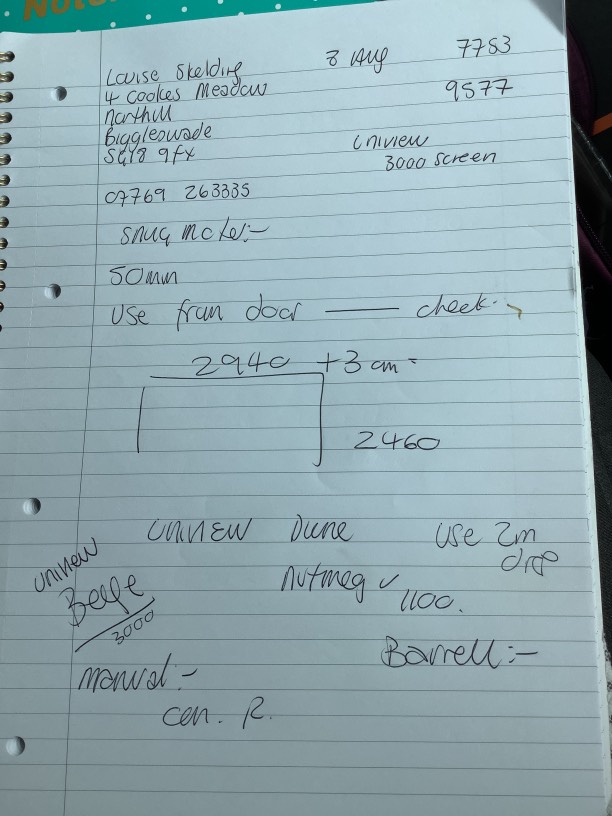 Note
Louise Skelding 8 Aug 7753
4 Cookes Meadow 9577
Northill
Biggleswade uniview
SG18 9FX 3000 screen
07769 263335
50mm
Use from door —— check
2940 + 3 cm
2460
UNIVIEW Dune use 2m
drop
uniview Nutmeg ✓ 1100.
Beige
3000
Barrell:-
manual:-
Con. R.